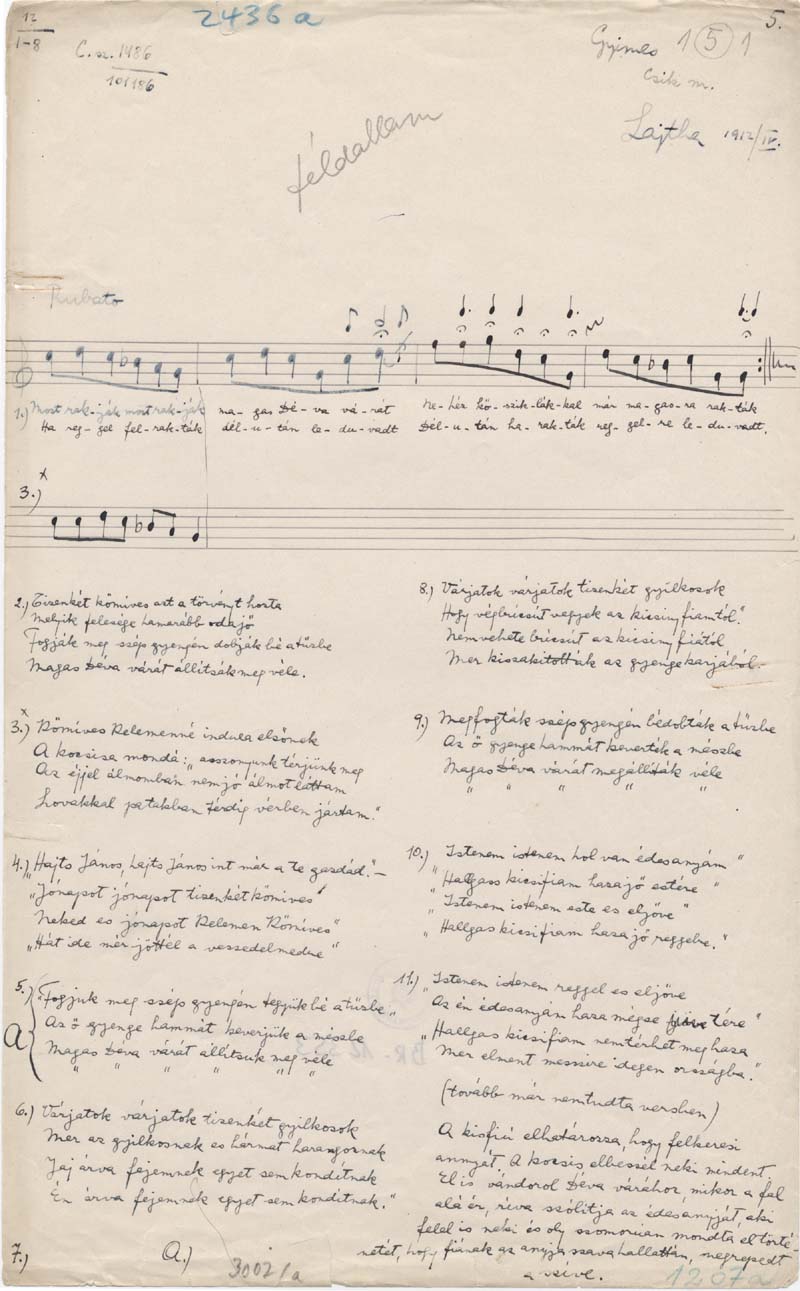 12
1-8
C. sz. 1486
10/186
2436 a
5.
Gyimes 1 5 1
Csik m.
Lajtha 1912/IV.
féldallam
Rubato
1.) Most rak-ják most rak-ják ma-gas Dé-va vá-rát Ne-héz kő-szik-lák-kal már ma-gas-ra rak-ták
Ha reg-gel fel-rak-ták dél-u-tán le-du-vadt Dél-u-tán ha-rak-ták reg-gel-re le-du-vadt.
3.) x
2.) Tizenkét kőmives azt a törvényt hozta
Melyik felesége hamarább oda jő
Fogják meg szép gyengén dobják bé a tűzbe
Magas Déva várát állítsák meg véle.
3.) x Kőmíves Kelemenné indula elsőnek
A kocsisa mondá: „asszonyunk térjünk meg
Az éjjel álmomban nem jó álmot láttam
Lovakkal patakban térdig vérben jártam."
4.) „Hajts János, hajts János int már a te gazdád." –
„Jónapot jónapot tizenkét kőmives"
„Neked es jónapot Kelemen Kőmíves"
„Hát ide mér jöttél a veszedelmedre"
5.) „Fogjuk meg szép gyengén tegyük bé a tűzbe"
A Az ő gyenge hammát keverjük a mészbe
Magas Déva várát állítsuk meg véle
" " " " " "
6.) Várjatok várjatok tizenkét gyilkosok
Mer az gyilkosnak es hármat harangoznak
Jaj árva fejemnek egyet sem kondítnak
Én árva fejemnek egyet sem kondítnak."
7.) A.)
3002/a
8.) Várjatok várjatok tizenkét gyilkosok
Hogy végbúcsút vegyek az kicsiny fiamtól."
Nem vehete búcsút az kicsiny fiától
Mer kiszakították az gyenge karjából.–
9.) Megfogták szép gyengén bédobták a tűzbe
Az ő gyenge hammát keverték a mészbe
Magas Déva várát megállíták véle
" " " " "
10.) „Istenem istenem hol van édesanyám"
„Hallgass kicsi fiam haza jő estére"
„Istenem istenem este es eljöve"
„Hallgas kicsi fiam haza jő reggelre."
11.) „Istenem istenem reggel es eljöve
Az én édesanyám haza mégse tére"
„Hallgas kicsi fiam nem térhet meg haza
Mer elment messzire idegen országba."
(tovább már nem tudta versben)
A kisfiú elhatározza, hogy felkeresi
annyát. A kocsis elbeszél neki mindent.
El is vándorol Déva várához, mikor a fal
alá ér, ríva szólítja az édesanyját, aki
felel is neki és oly szomorúan mondta el törté-
netét, hogy fiának az anyja szava hallattán, megrepedt
a szíve.
1207a